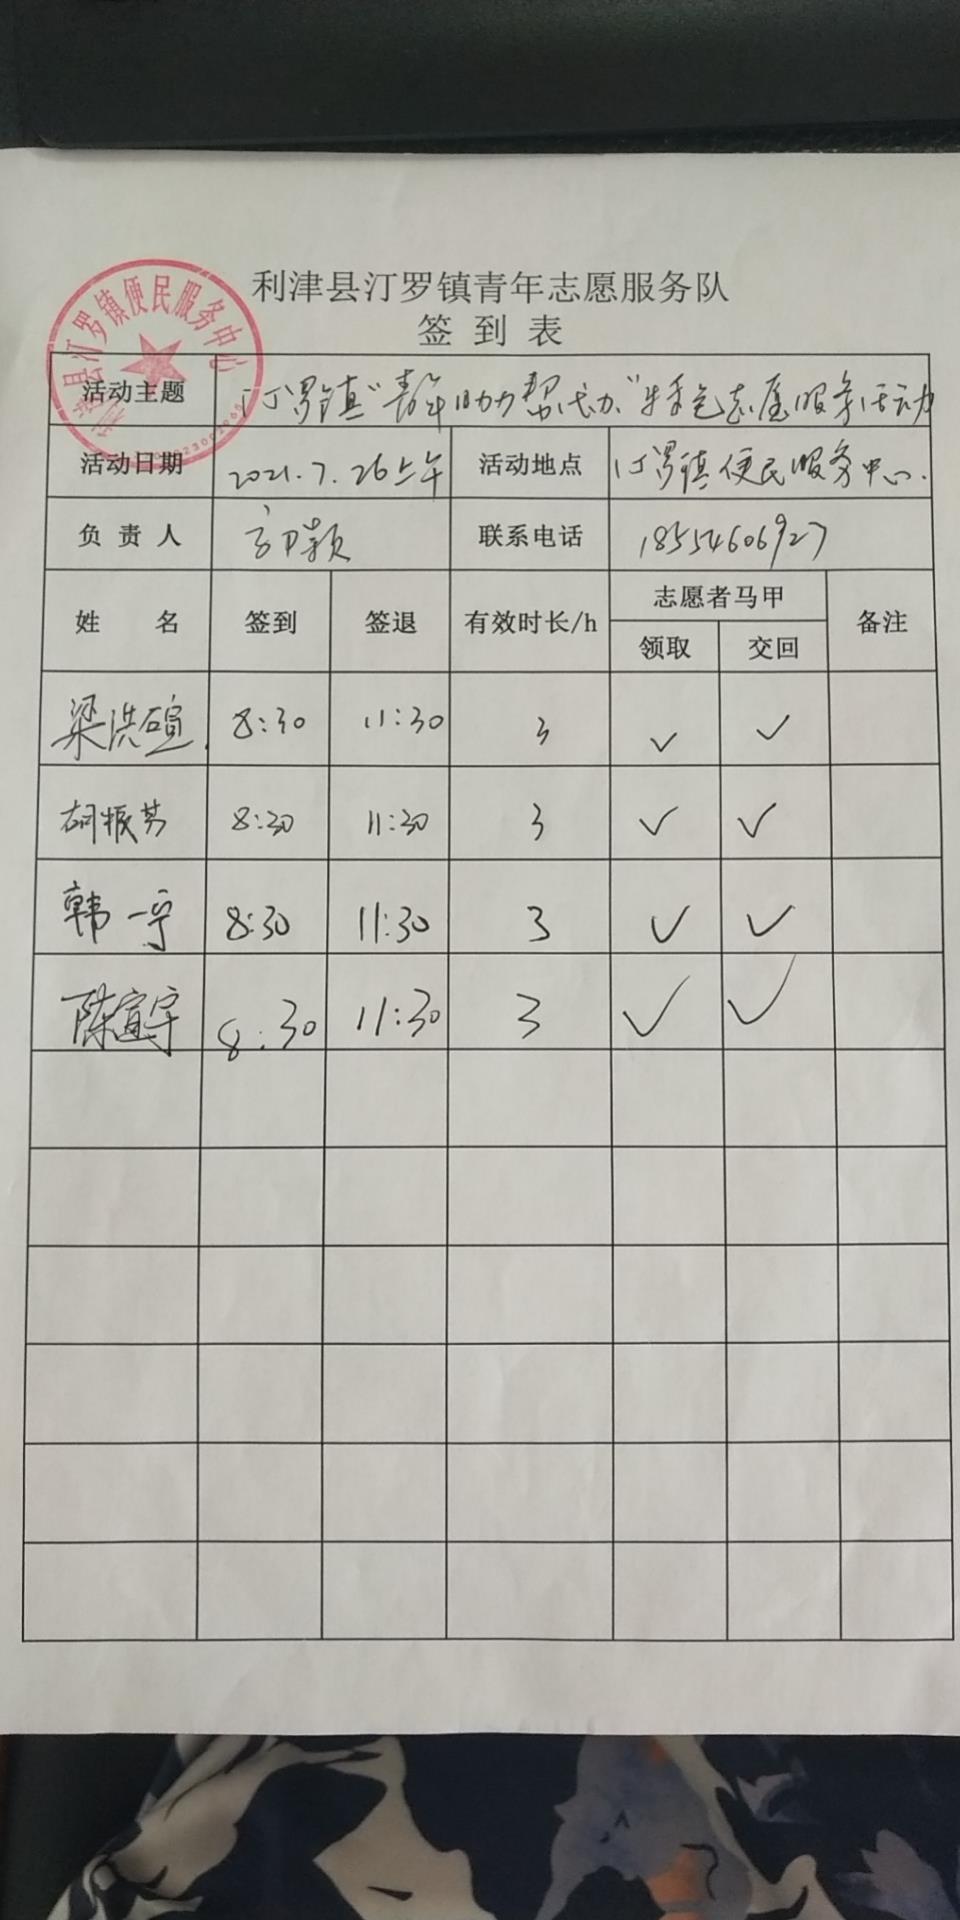 利津县汀罗镇青年志愿服务队
签到表
利津县汀罗镇便民服务中心
活动主题 汀罗镇"青年助力帮代办"特色志愿服务活动
活动日期 2021.7.26上午 活动地点 汀罗镇便民服务中心.
负责人 颖 联系电话 18554606927
姓名 签到 签退 有效时长/h 志愿者马甲 备注
领取 交回
梁洪碹 8:30 11:30 3 ✓ ✓
胡振芳 8:30 11:30 3 ✓ ✓
韩一宁 8:30 11:30 3 ✓ ✓
陈宣宇 8:30 11:30 3 ✓ ✓